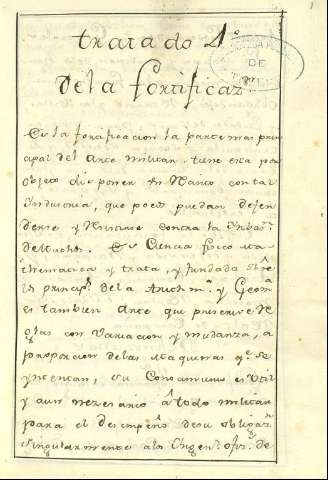 tratado 1º
de la fortificaz.n
DE
Es la fortificacion la parte mas prin
cipal del Arte militar. tiene esta por
objeto disponer un Recinto con tal
Yndustria, que pocos puedan defen
derse y resistirse contra la Ynbas.n
de Muchos. Es Ciencia fisico Ma
thematica y trata, y fundada sobre
los princip.s de la Arithm.ca y Geom.
es tambien Arte que prescrive Re
glas con variacion y mudanza, a
proporcion de las Maquinas q.e se
ynventan, su Conocimiento es Util
y aun nezesario a todo militar
para el desempeño de su obligaz.n
singularmente a los Yngen.s ofiz.s de